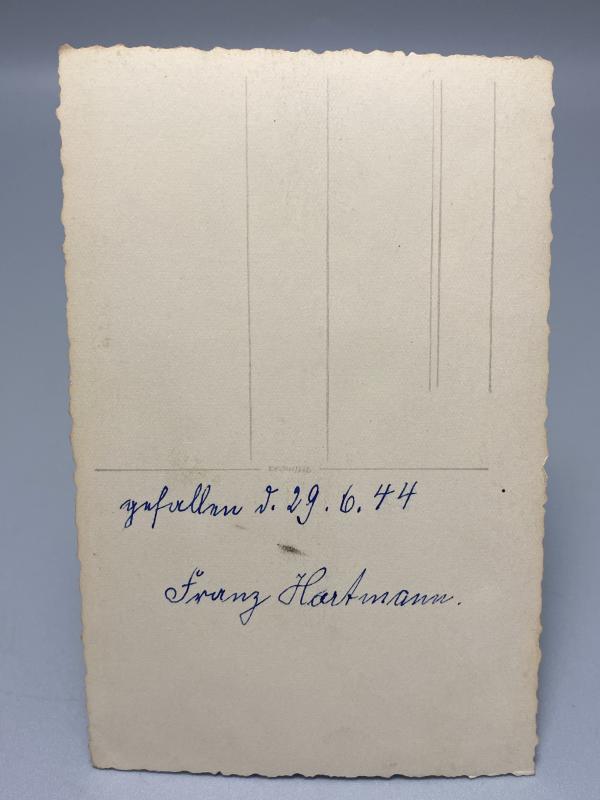 gefallen d. 29. 6. 44
Franz Hartmann.